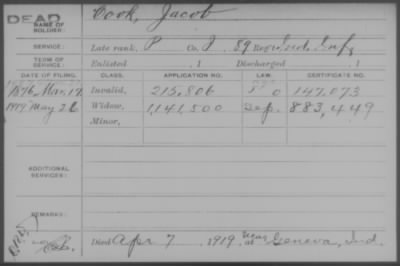 DEAD
NAME OF SOLDIER:
Cook, Jacob
SERVICE: Late rank, P Co. I, 89 Reg't Ind. Inf.
TERM OF SERVICE: Enlisted , 1 Discharged , 1
DATE OF FILING. CLASS. APPLICATION NO. LAW. CERTIFICATE NO.
1876, Mar. 17. Invalid, 215,806 147,073
1919, May 26 Widow, 1,141,500 883,449
Minor,
ADDITIONAL SERVICES:
REMARKS:
Died Apr 7, 1919, near at Geneva, Ind.